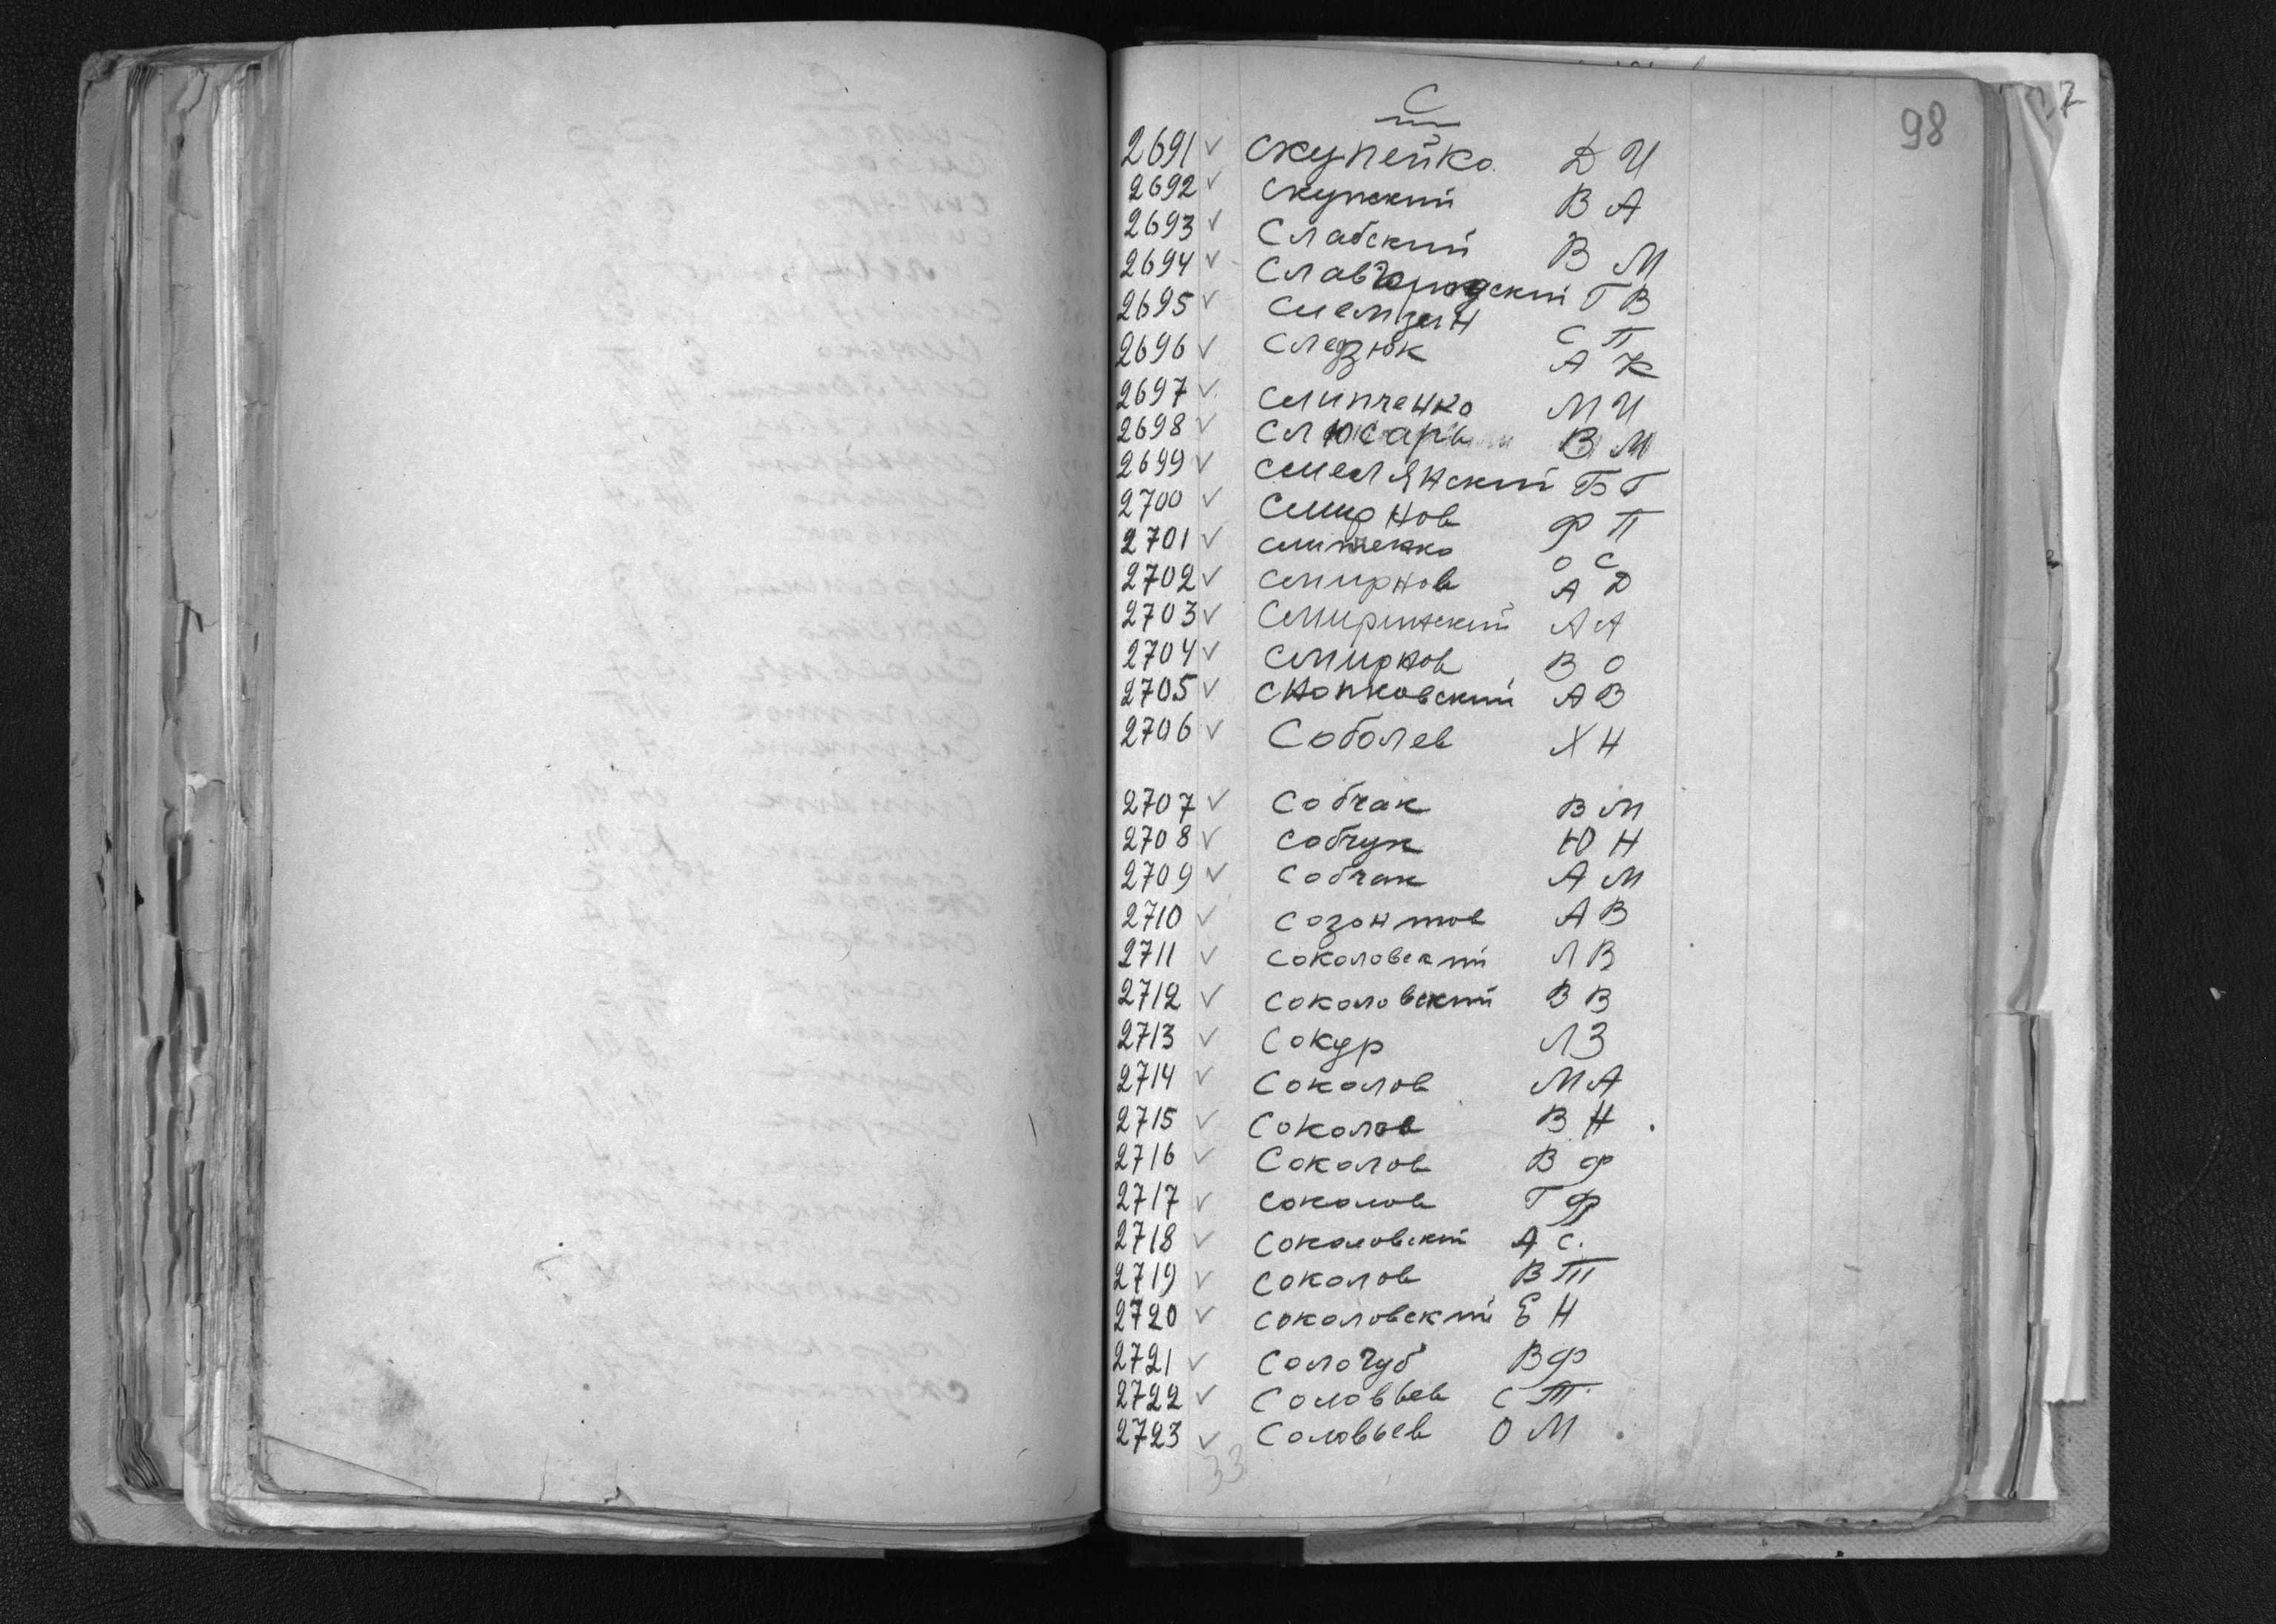 С
98
2691 ✓ Скупейко Д И
2692 ✓ Скупский В А
2693 ✓ Слабский В М
2694 ✓ Славгородский Г В
2695 ✓ С П
2696 ✓ Следзюк А К
2697 ✓ Слипченко М И
2698 ✓ Слюсарь В М
2699 ✓ Смелянский Б Г
2700 ✓ Смирнов Ф П
2701 ✓ О С
2702 ✓ Смирнов А Д
2703 ✓ Смиринский А А
2704 ✓ Смирнов В О
2705 ✓ Снопковский А В
2706 ✓ Соболев Х Н
2707 ✓ Собчак В М
2708 ✓ Собчук Ю Н
2709 ✓ Собчак А М
2710 ✓ Созонтов А В
2711 ✓ Соколовский Л В
2712 ✓ Соколовский В В
2713 ✓ Сокур Л З
2714 ✓ Соколов М А
2715 ✓ Соколов В Н
2716 ✓ Соколов В Ф
2717 ✓ Соколов Г Ф
2718 ✓ Соколовский А С.
2719 ✓ Соколов В Т
2720 ✓ Соколовский Е Н
2721 ✓ Сологуб В Ф
2722 ✓ Соловьев С Т
2723 ✓ Соловьев О М
33